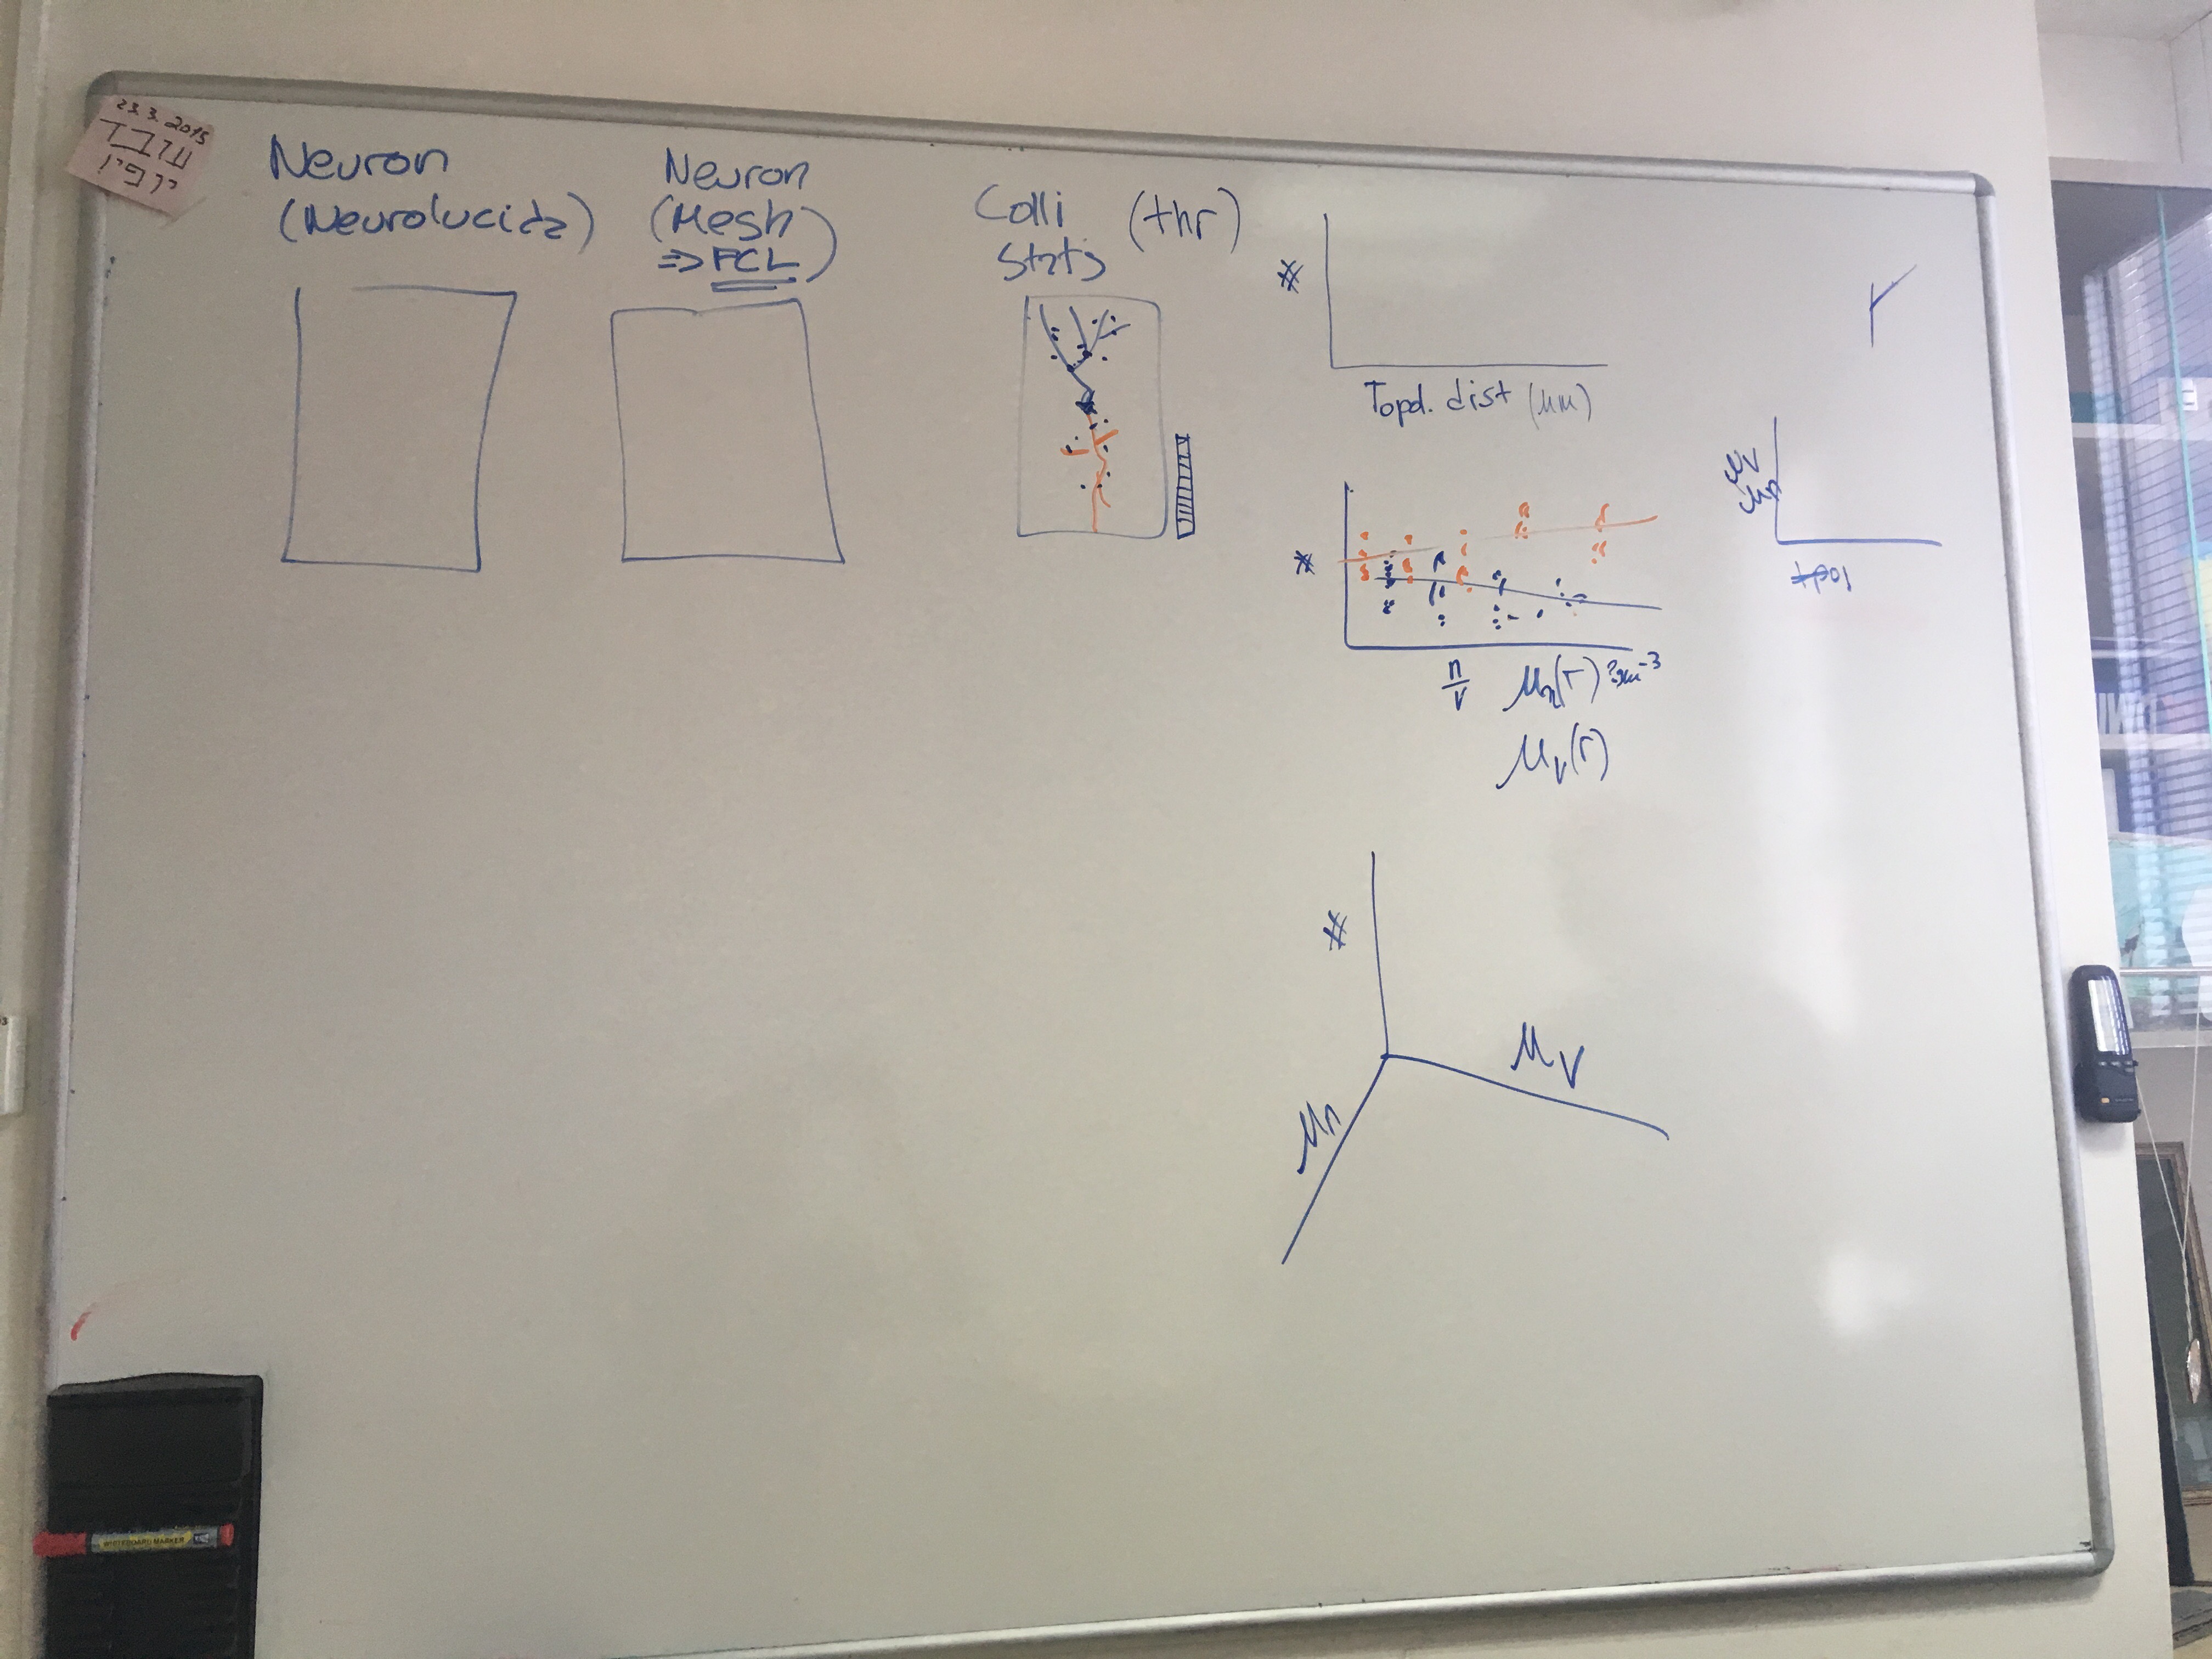 23.3.2015
Neuron
(Neurolucida)
Neuron
(Mesh
=> FCL)
Colli
stats
(thr)
#
Topol. dist (μm)
#
n/v μn(r)
μv(r)
μv
μn
#
μv
μn
WHITEBOARD MARKER